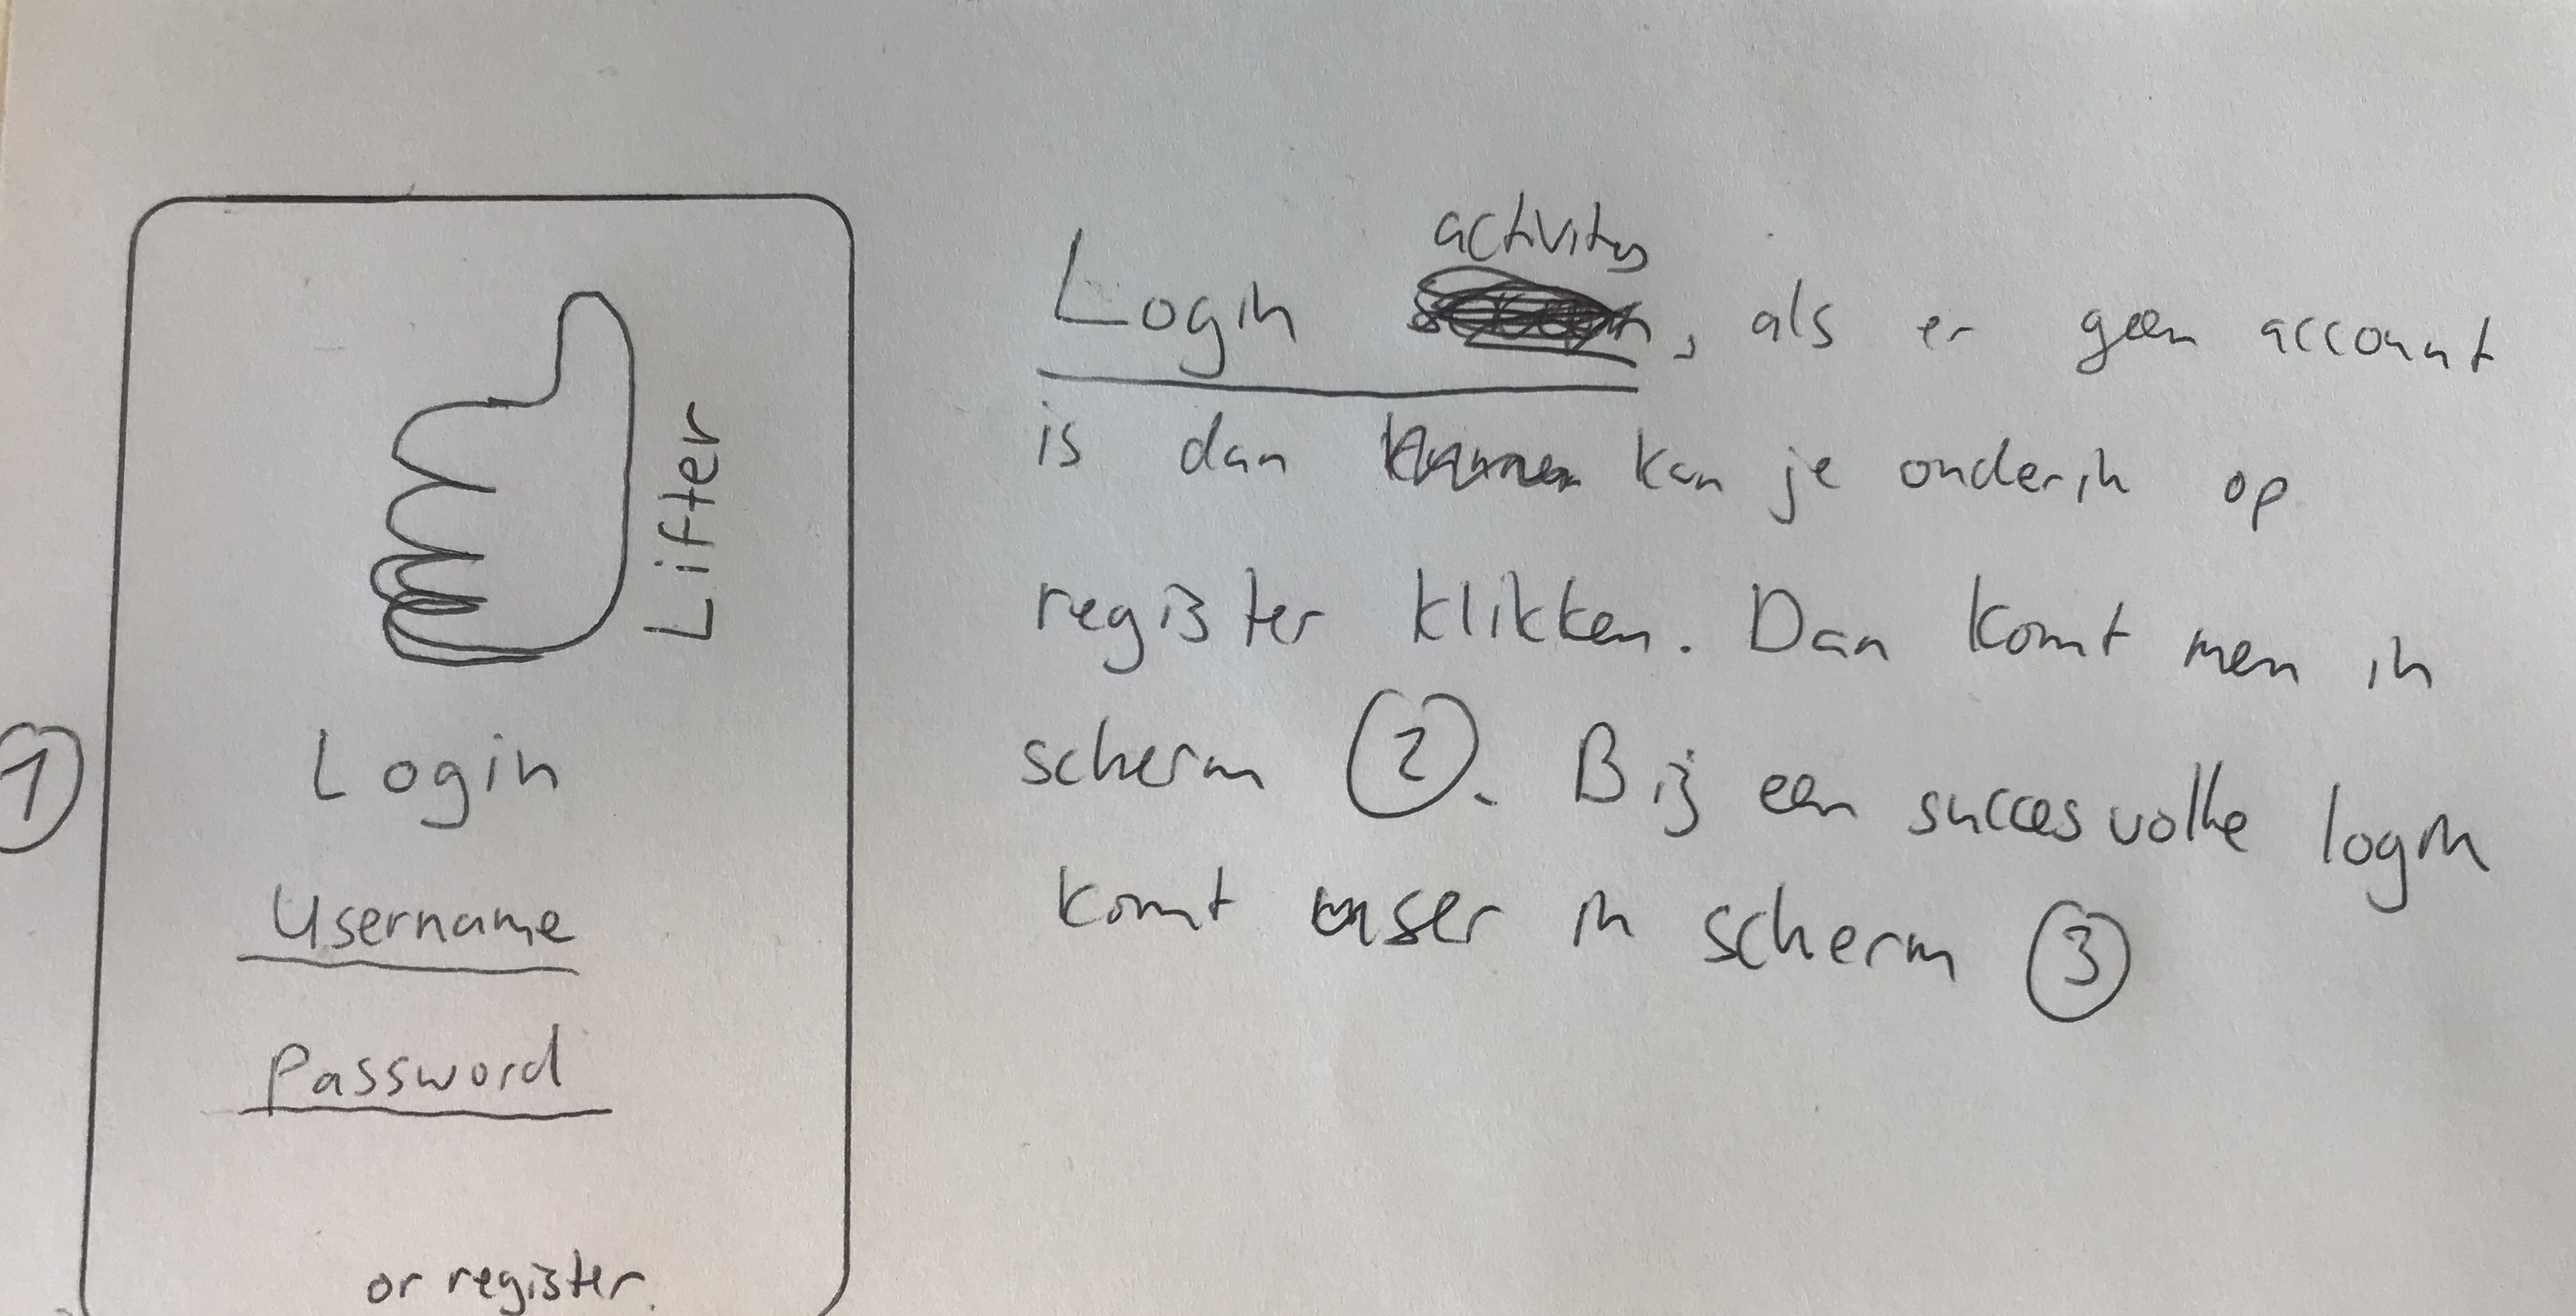 1
Lifter
Login
Username
Password
or register.
activity
Login , als er geen account
is dan kan je onderin op
register klikken. Dan komt men in
scherm 2. Bij een succesvolle login
komt user in scherm 3